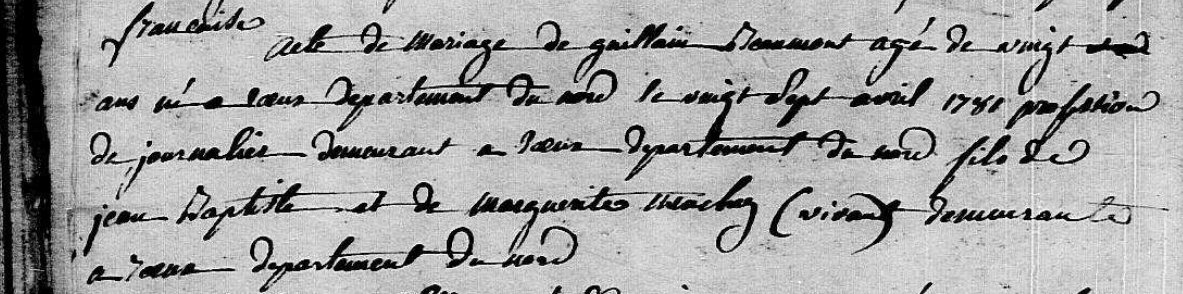 française
acte de mariage de guillain Beaumont agé de vingt
ans né a rœux departement du nord le vingt sept avril 1781 profession
de journalier demeurant a rœux departement du nord fils de
jean Baptiste et de marguerite (vivant) demeurante
a rœux departement du nord